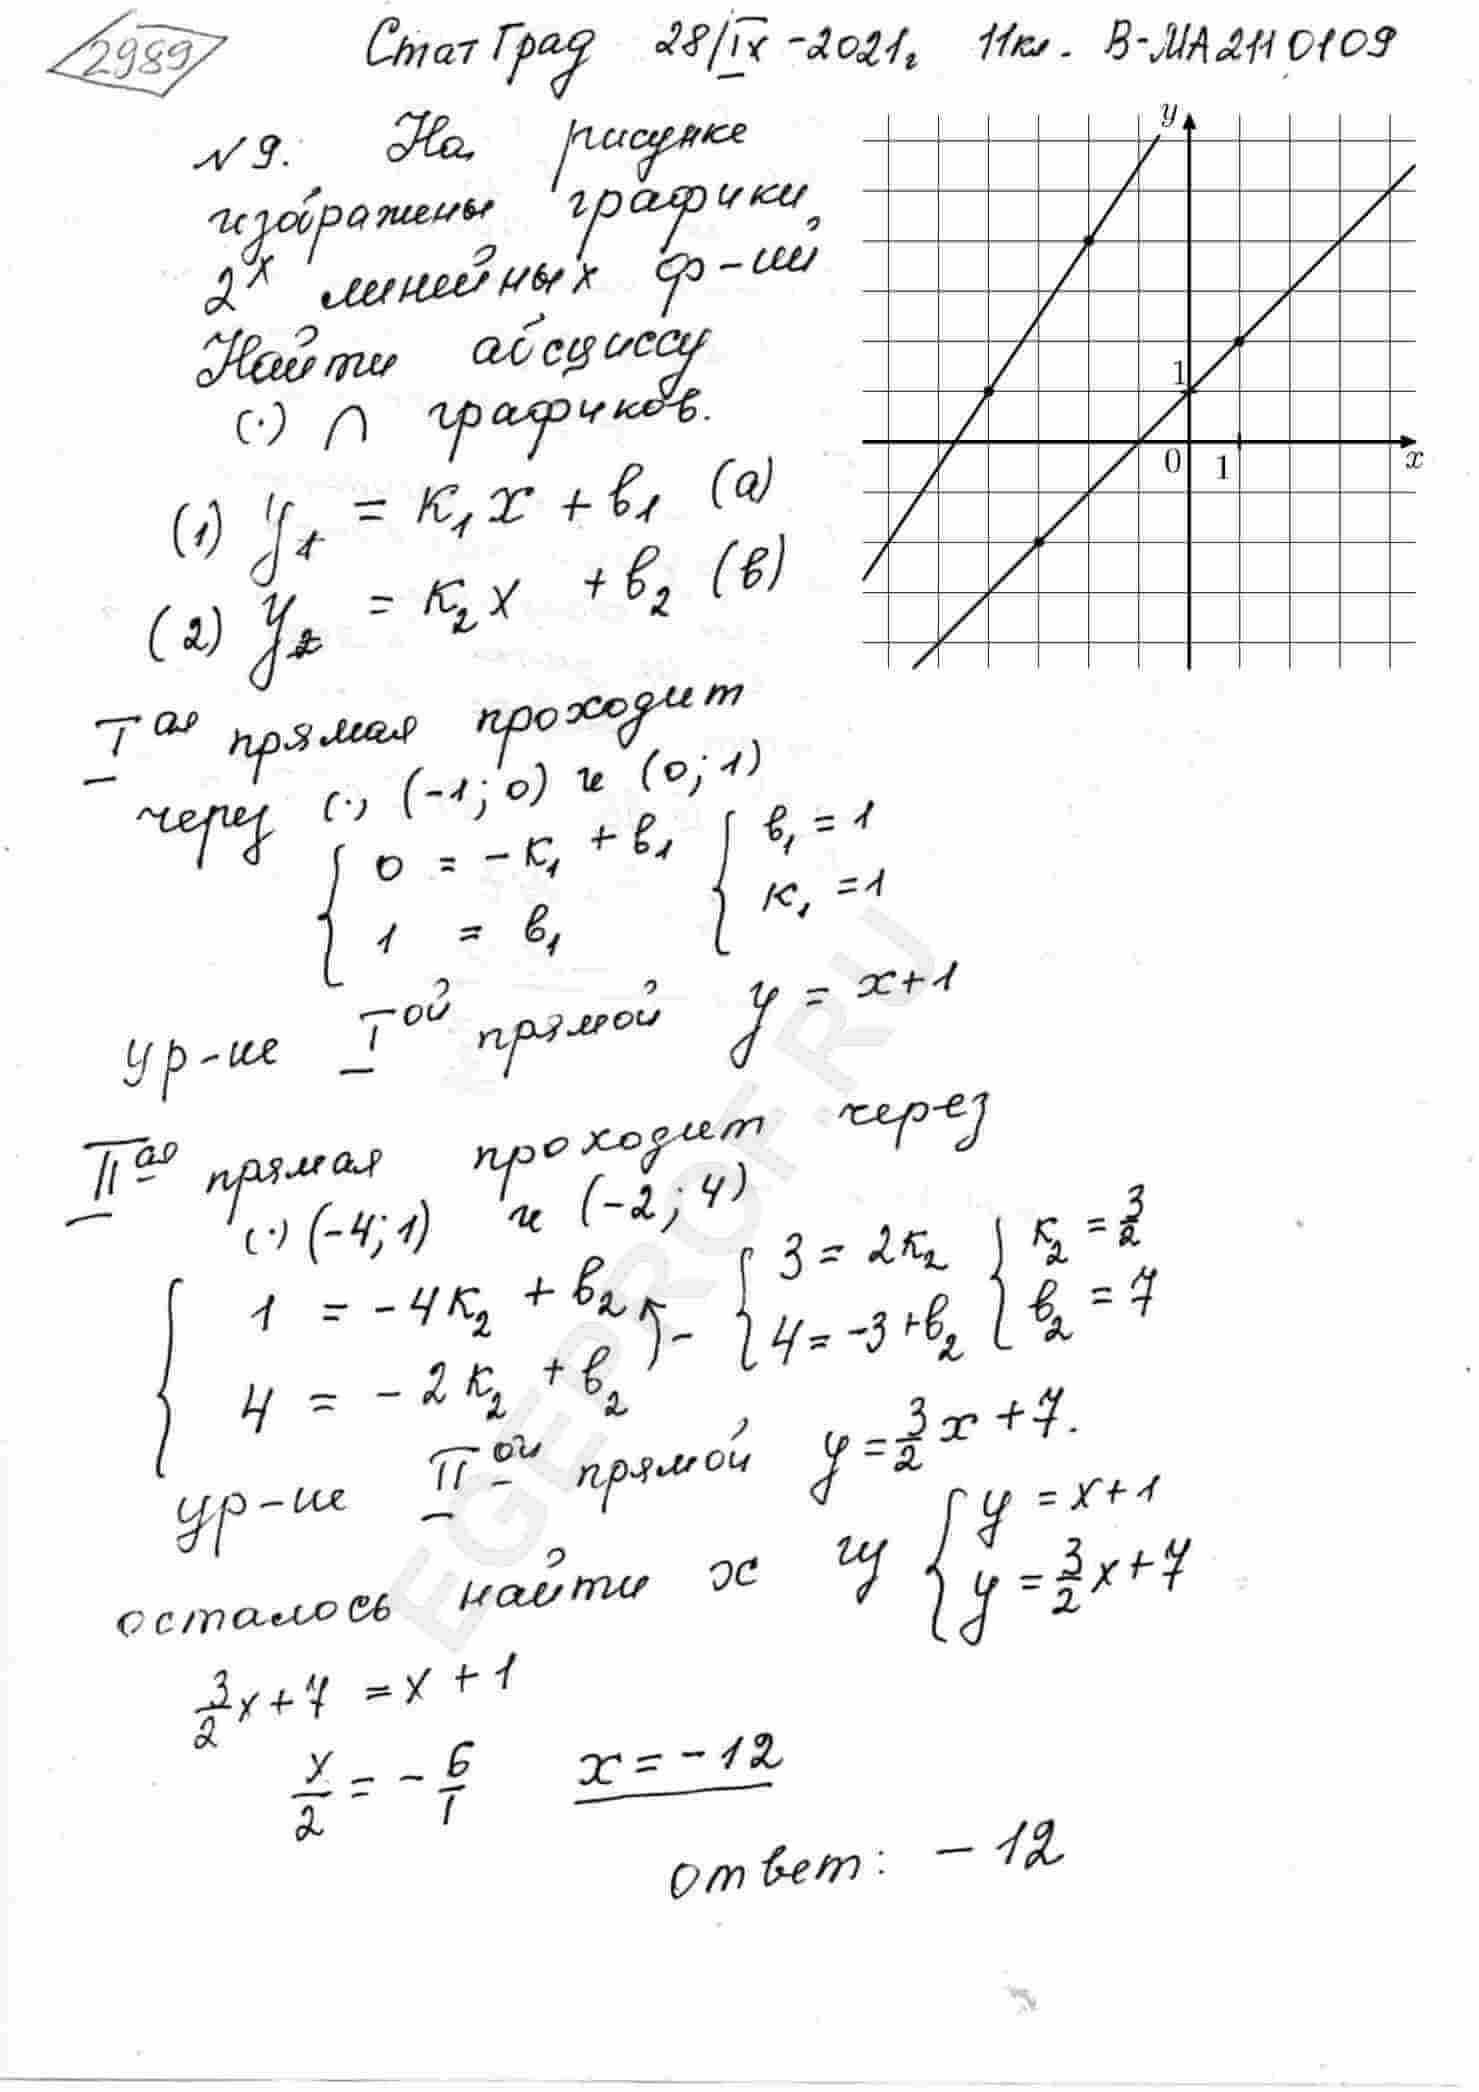 2989
СтатГрад 28/IX-2021г 11кл. В-МА2110109
№9. На рисунке
изображены графики
2х линейных ф-ий
Найти абсциссу
(·) ∩ графиков.
y
1
0 1 x
(1) y₁ = к₁x + в₁ (а)
(2) y₂ = к₂x + в₂ (в)
Iая прямая проходит
через (·) (-1; 0) и (0; 1)
{ 0 = -к₁ + в₁ { в₁ = 1
1 = в₁ к₁ = 1
ур-ие Iой прямой y = x+1
IIая прямая проходит через
(·) (-4; 1) и (-2; 4)
{ 1 = -4к₂ + в₂ { 3 = 2к₂ { к₂ = 3/2
4 = -2к₂ + в₂ - 4 = -3+в₂ в₂ = 7
ур-ие IIой прямой y = 3/2 x + 7.
осталось найти x из { y = x+1
y = 3/2 x + 7
3/2 x + 7 = x + 1
x/2 = - 6/1 x = -12
ответ: -12
EGEPROF.RU